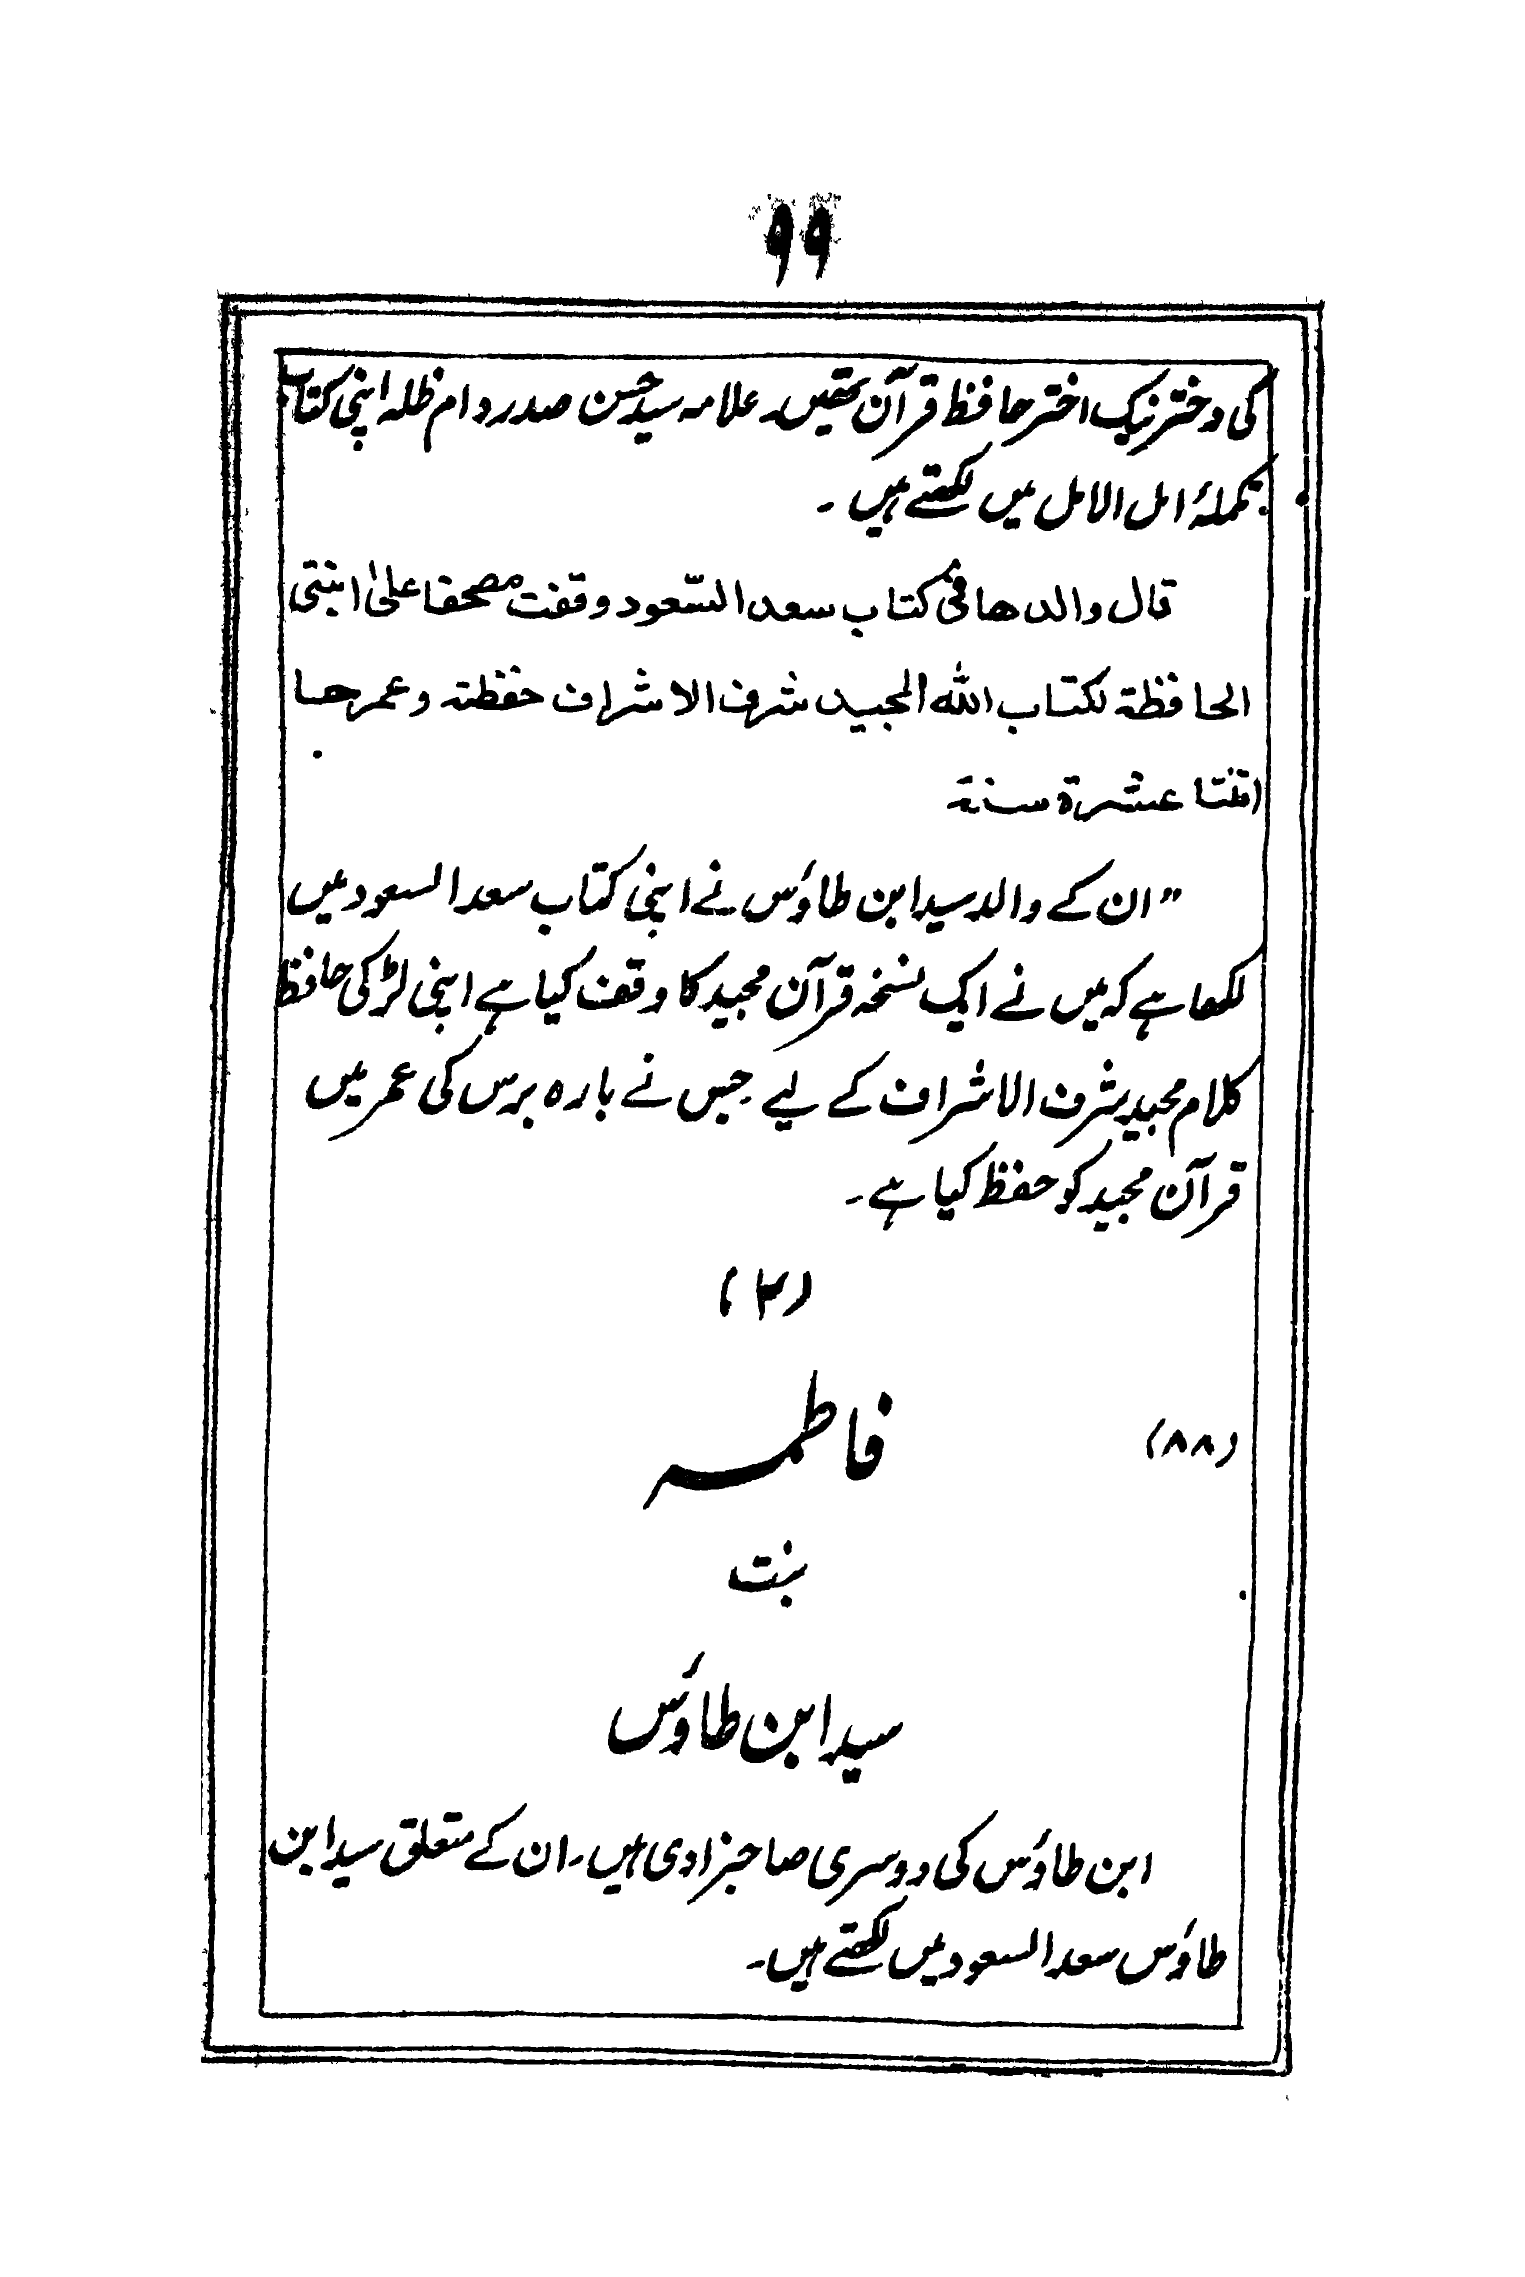 ۹۹
کی دختر نیک اختر حافظ قرآن تھیں۔ علامہ سید حسن صدر دام ظلہ اپنی کتاب
تکملۂ امل الامل میں لکھتے ہیں ۔
قال والدها فی کتاب سعد السّعود وقفت مصحفا علیٰ ابنتی
الحافظة لکتاب الله المجید شرف الاشراف حفظتہ وعمرها
اثنتا عشرة سنة
” ان کے والد سید ابن طاؤس نے اپنی کتاب سعد السعود میں
لکھا ہے کہ میں نے ایک نسخہ قرآن مجید کا وقف کیا ہے اپنی لڑکی حافظ
کلام مجید شرف الاشراف کے لیے جس نے بارہ برس کی عمر میں
قرآن مجید کو حفظ کیا ہے۔
(۲)
(۸۸) فاطمہ
بنت
سید ابن طاؤس
ابن طاؤس کی دوسری صاحبزادی ہیں۔ ان کے متعلق سید ابن
طاؤس سعد السعود میں لکھتے ہیں۔